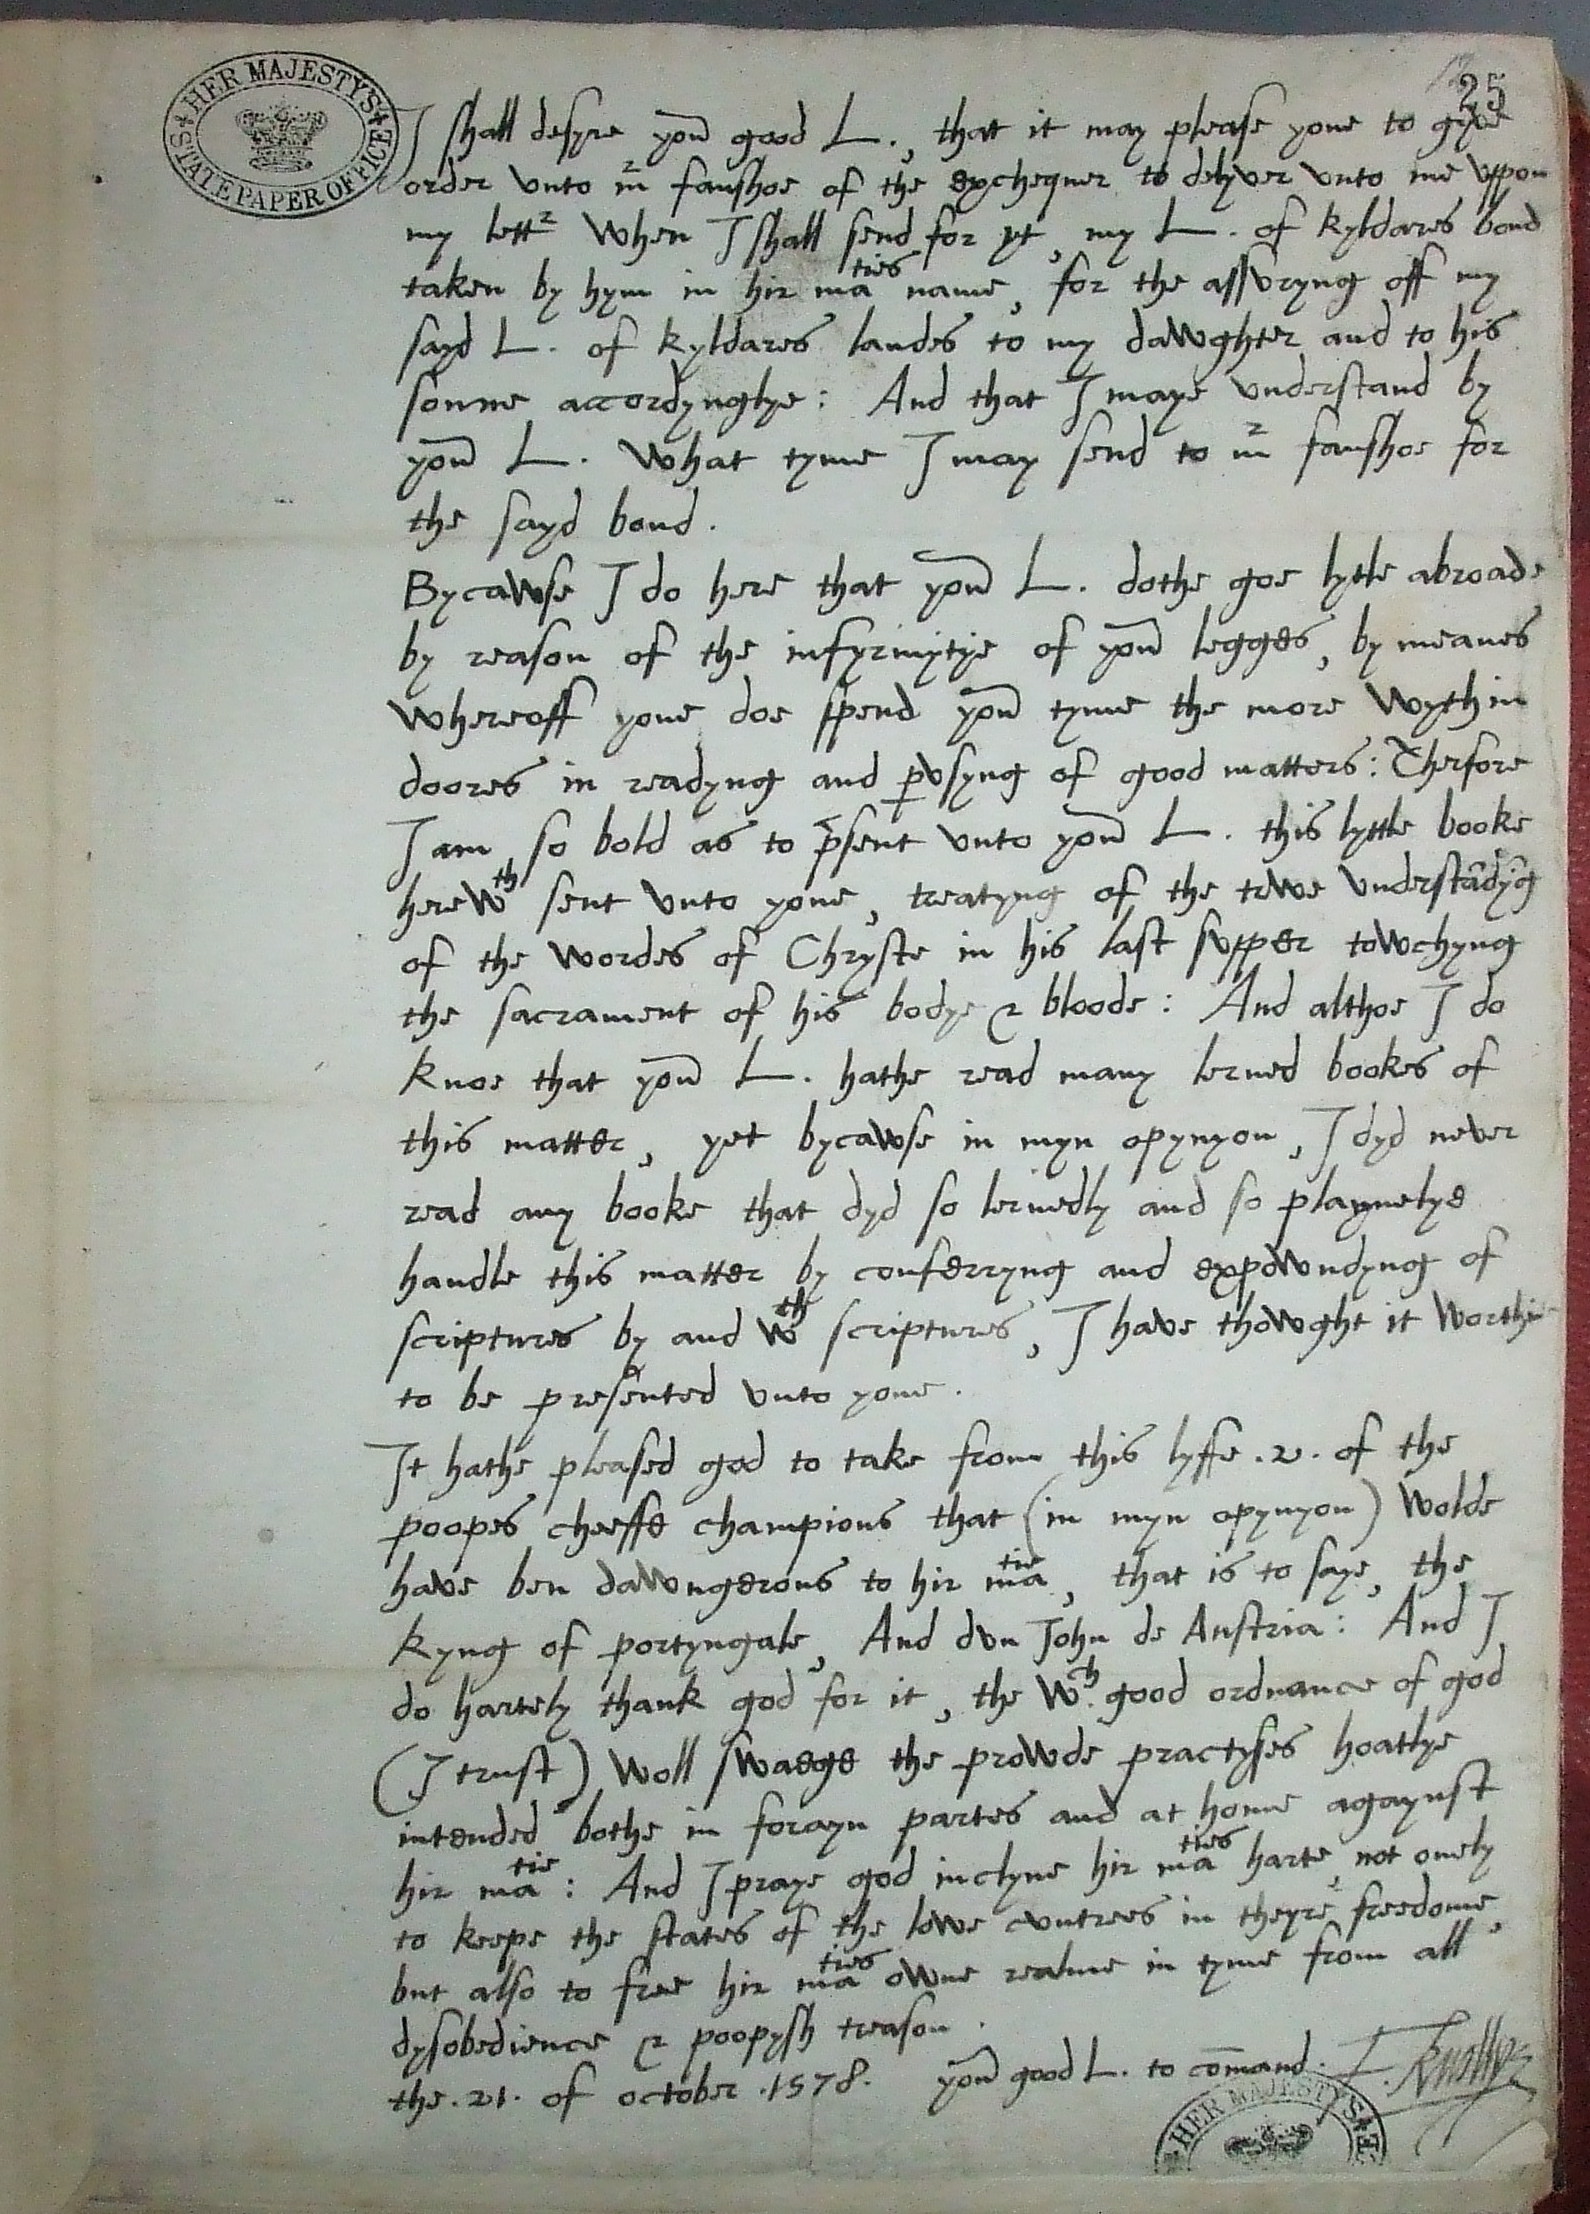 HER MAJESTYS
STATE PAPER OFFICE
25
I shall desyre yoͬ good L., that it may please youe to gyve
order vnto mʳ fanshoe of the exchequer to delyver vnto me vppon
my lettʳ when I shall send for yt, my L. of kyldares bond
taken by hym in hir maᵗⁱᵉˢ name, for the assvryng off my
sayd L. of kyldares landes to my dawghter and to his
sonne accordynglye: And that I maye vnderstand by
yoͬ L. what tyme I may send to mʳ fanshoe for
the sayd bond.
Bycawse I do here that yoͬ L. dothe goe lytle abroade
by reason of the infyrmytye of yoͬ legges, by meanes
whereoff youe doe spend yoͬ tyme the more wythin
doores in readyng and pvsyng of good matters: Therfore
I am so bold as to psent vnto yoͬ L. this lyttle booke
herewᵗʰ sent vnto youe, treatyng of the trwe vnderstādȳg
of the wordes of Chryste in his last svpper towchyng
the sacrament of his bodye & bloode: And althoe I do
knoe that yoͬ L. hathe read many lerned bookes of
this matter, yet bycawse in myn opynyon, I dyd never
read any booke that dyd so lernedly and so playnelye
handle this matter by conferryng and expowndyng of
scriptures by and wᵗʰ scriptures, I have thowght it worthie
to be presented vnto youe.
It hathe pleased god to take from this lyffe .2. of the
poopes cheeffe champions that (in myn opynyon) wolde
have ben dawngerous to hir maᵗⁱᵉ, that is to saye, the
kyng of portyngale, And dvn John de Austria: And I
do hartely thank god for it, the wᶜʰ. good ordnance of god
(I trust) woll swaege the prowde practyses hoatlye
intended bothe in forayn partes and at home agaynst
hir maᵗⁱᵉ: And I praye god inclyne hir maᵗⁱᵉˢ harte, not onely
to keepe the states of the lowe cvntrees in theyre freedome,
but also to free hir maᵗⁱᵉˢ owne realme in tyme from all
dysobedience & poopysh treason.
the .21. of october .1578. yoͬ good L. to cōmand. F. Knollys
HER MAJESTYS